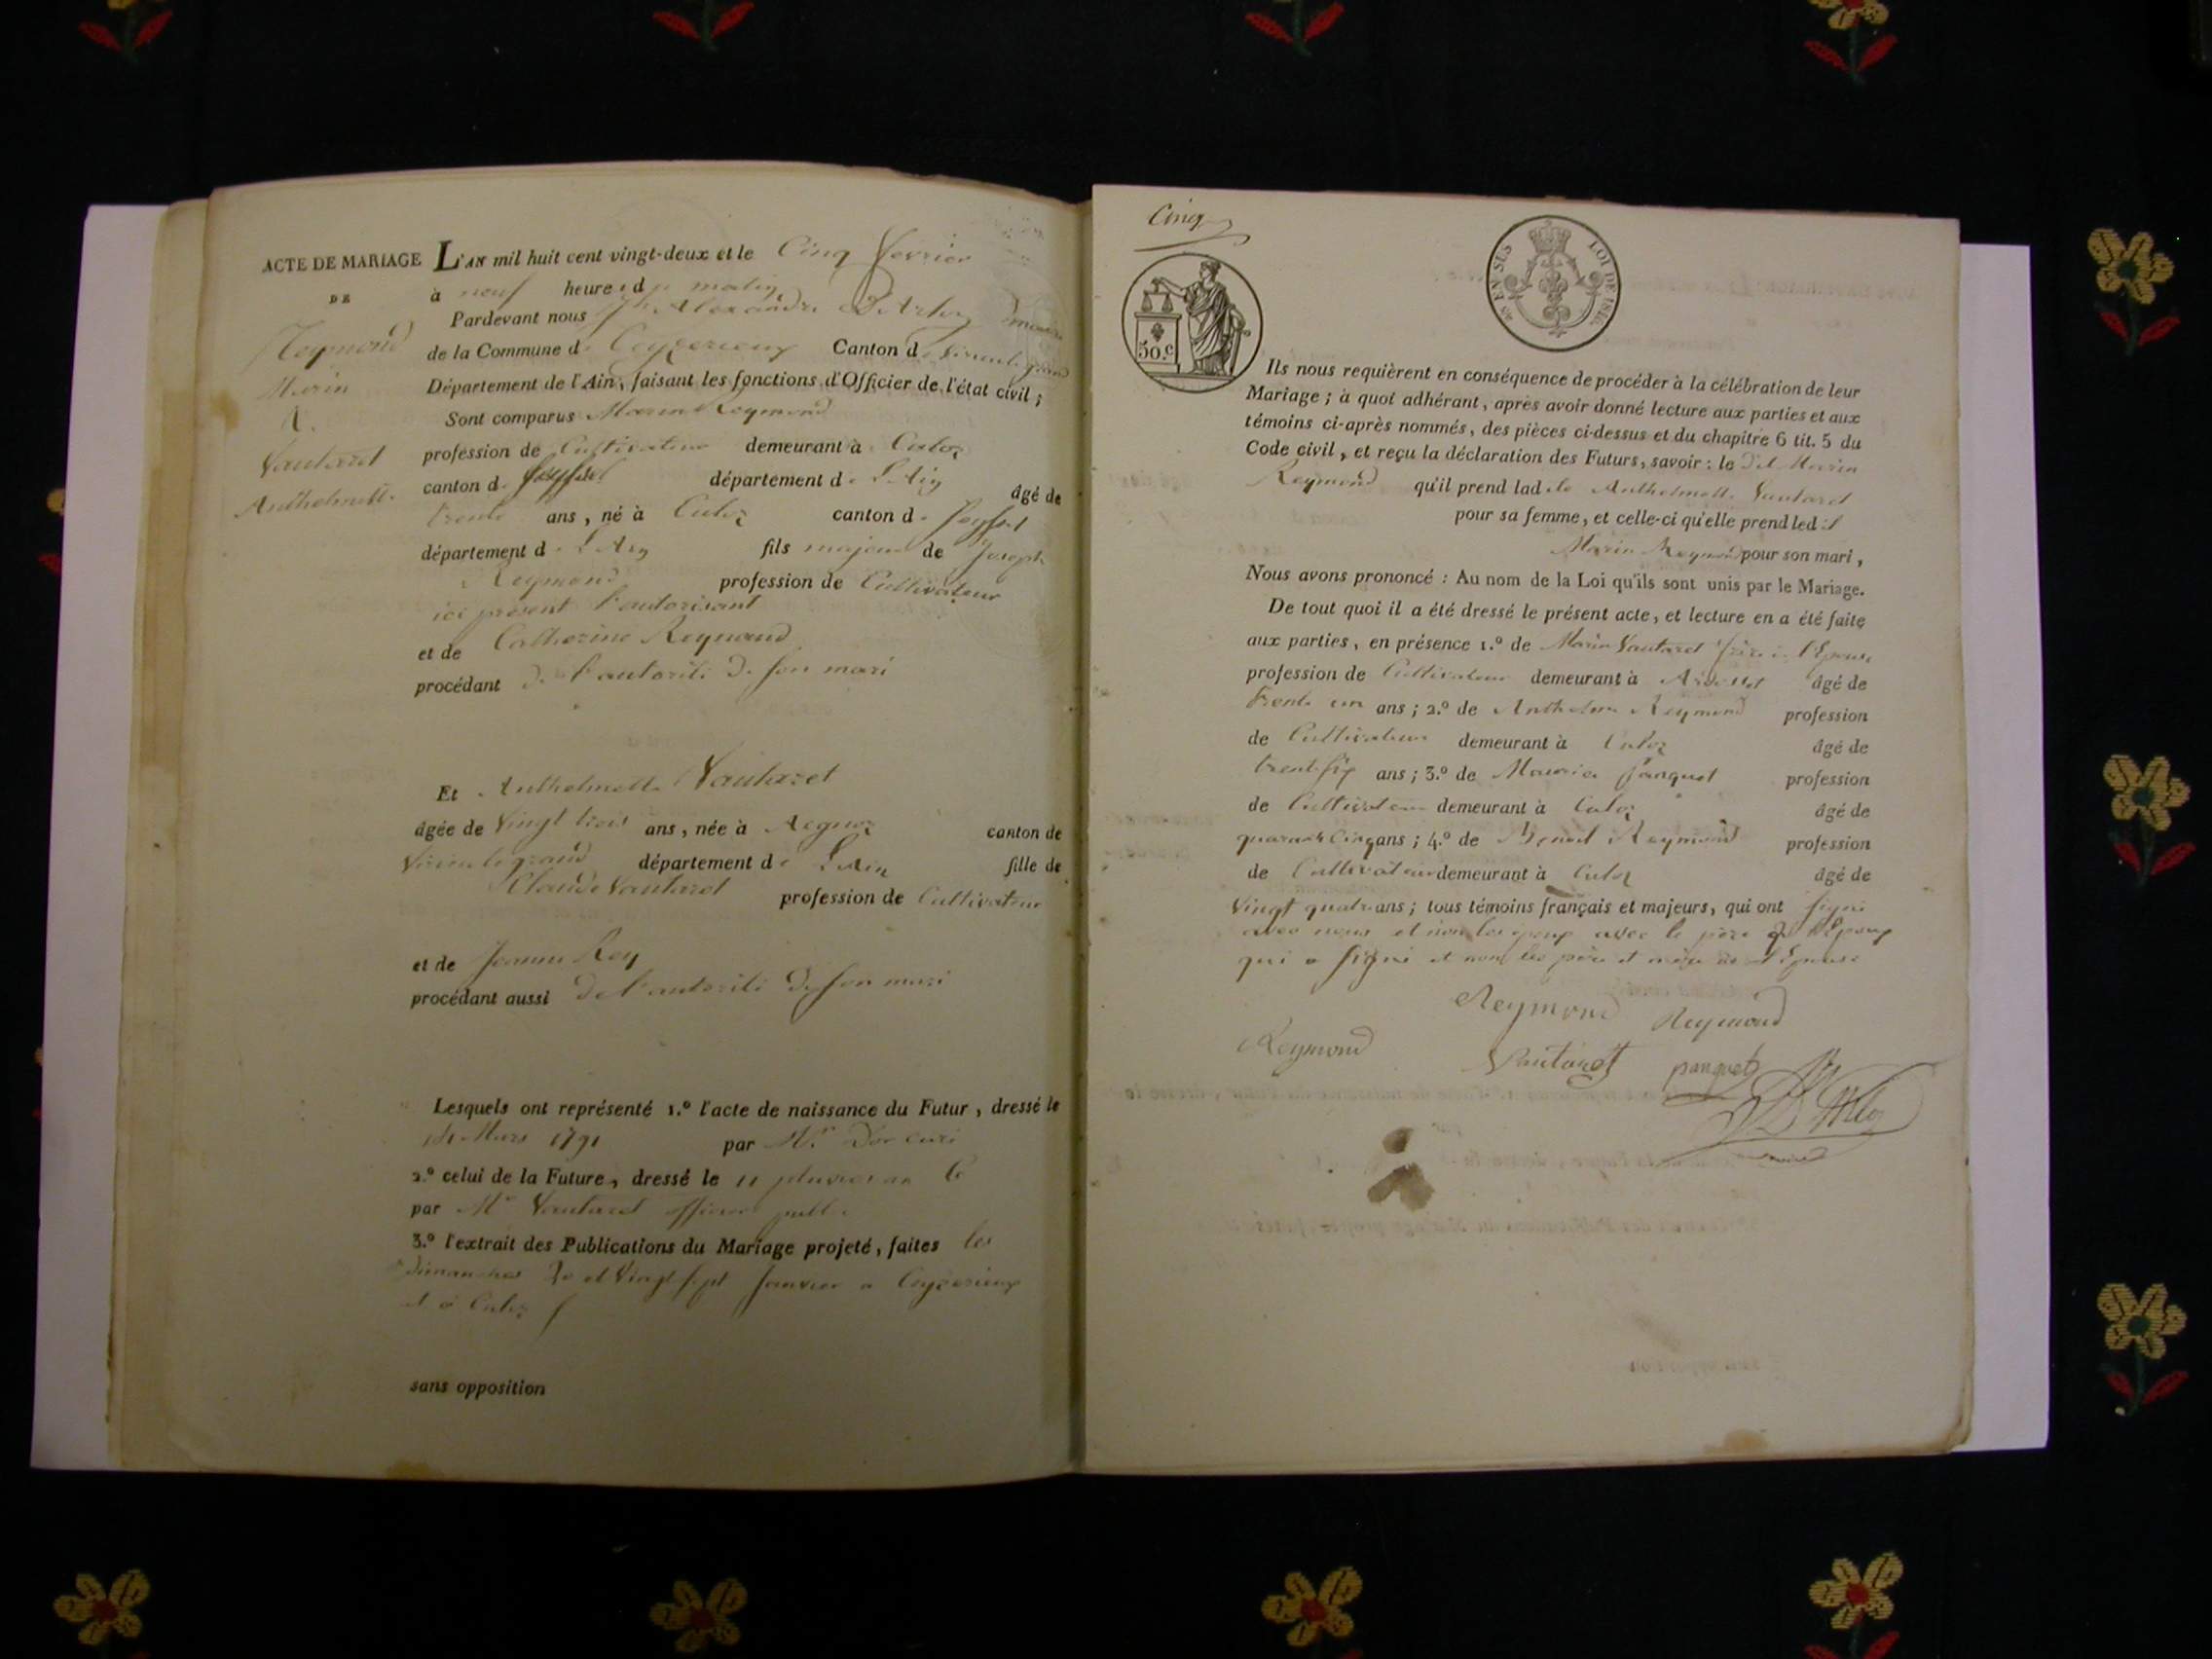 ACTE DE MARIAGE
DE
Reymond
Marin
&
Vautaret
Anthelmette
L'AN mil huit cent vingt-deux et le Cinq fevrier
à neuf heure du matin
Pardevant nous Jh Alexandre D'Arloz maire
de la Commune de Ceyzerieux Canton de Virieu le grand
Département de l'Ain, faisant les fonctions d'Officier de l'état civil;
Sont comparus Marin Reymond
profession de Cultivateur demeurant à Culoz
canton de Seyssel département de L'Ain âgé de
trente ans, né à Culoz canton de Seyssel
département de L'Ain fils majeur de Joseph
Reymond profession de Cultivateur
ici présent l'autorisant
et de Catherine Reynaud
procédant de l'autorité de son mari
Et Anthelmette Vautaret
âgée de Vingt trois ans, née à canton de
Virieu le grand département de L'Ain fille de
Claude Vautaret profession de Cultivateur
et de Jeanne Rey
procédant aussi de l'autorité de son mari
Lesquels ont représenté 1.º l'acte de naissance du Futur, dressé le
14 Mars 1791 par Mr. curé
2.º celui de la Future, dressé le 11 pluviose an 6
par Mr Vautaret officier public
3.º l'extrait des Publications du Mariage projeté, faites les
dimanches 20 et Vingt sept Janvier a Ceyzerieux
et à Culoz
sans opposition
Cinq
50.c
EN SUS
LOI DE 1816.
Ils nous requièrent en conséquence de procéder à la célébration de leur
Mariage; à quoi adhérant, après avoir donné lecture aux parties et aux
témoins ci-après nommés, des pièces ci-dessus et du chapitre 6 tit. 5 du
Code civil, et reçu la déclaration des Futurs, savoir: le dit Marin
Reymond qu'il prend lad. te Anthelmette Vautaret
pour sa femme, et celle-ci qu'elle prend led. t
Marin Reymond pour son mari,
Nous avons prononcé: Au nom de la Loi qu'ils sont unis par le Mariage.
De tout quoi il a été dressé le présent acte, et lecture en a été faite
aux parties, en présence 1.º de Marin Vautaret frère de l'Epouse
profession de Cultivateur demeurant à âgé de
trente un ans; 2.º de Anthelme Reymond profession
de Cultivateur demeurant à Culoz âgé de
trente six ans; 3.º de Maurice Panquet profession
de Cultivateur demeurant à Culoz âgé de
quarante Cinq ans; 4.º de Benoit Reymond profession
de Cultivateur demeurant à Culoz âgé de
Vingt quatre ans; tous témoins français et majeurs, qui ont signé
avec nous et non les epoux avec le père de l'Epoux
qui a signé et non les père et mère de l'Epouse
Reymond Reymond
Reymond Vautaret panquet
D'Arloz
maire